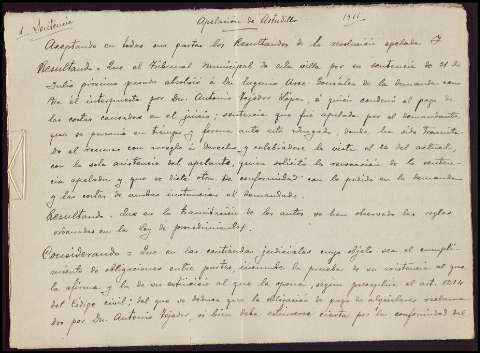 1ª Sentencia
Apelación de Astudillo 1911
Aceptando en todas sus partes los Resultandos de la resolución apelada. Y
Resultando = Que el Tribunal Municipal de esta villa por su sentencia de 21 de
Julio próximo pasado absolvió a Dn. Eugenio Arce González de la demanda con
tra él interpuesta por Dn. Antonio Tejedor López, á quien condenó al pago de
las costas causadas en el juicio; sentencia que fué apelada por el demandante
que se personó en tiempo y forma ante este Juzgado, donde ha sido tramita
do el recurso con arreglo á derecho y celebrádose la vista el del actual,
con la sola asistencia del apelante, quien solicitó la revocación de la senten-
cia apelada y que se dicte otra de conformidad con lo pedido en la demanda
y las costas de ambas instancias al demandado.
Resultando. Que en la tramitación de los autos se han observado las reglas
ordenadas en la ley de procedimientos.
Considerando = Que en las contiendas judiciales cuyo objeto sea el cumpli-
miento de obligaciones entre partes, incumbe la prueba de su existencia al que
la afirma y la de su extinción al que la opone, segun preceptúa el art. 1214
del Código civil; del que se deduce que la obligación de pago de alquileres reclama
dos por Dn. Antonio Tejedor, si bien debe estimarse cierta por la conformidad del